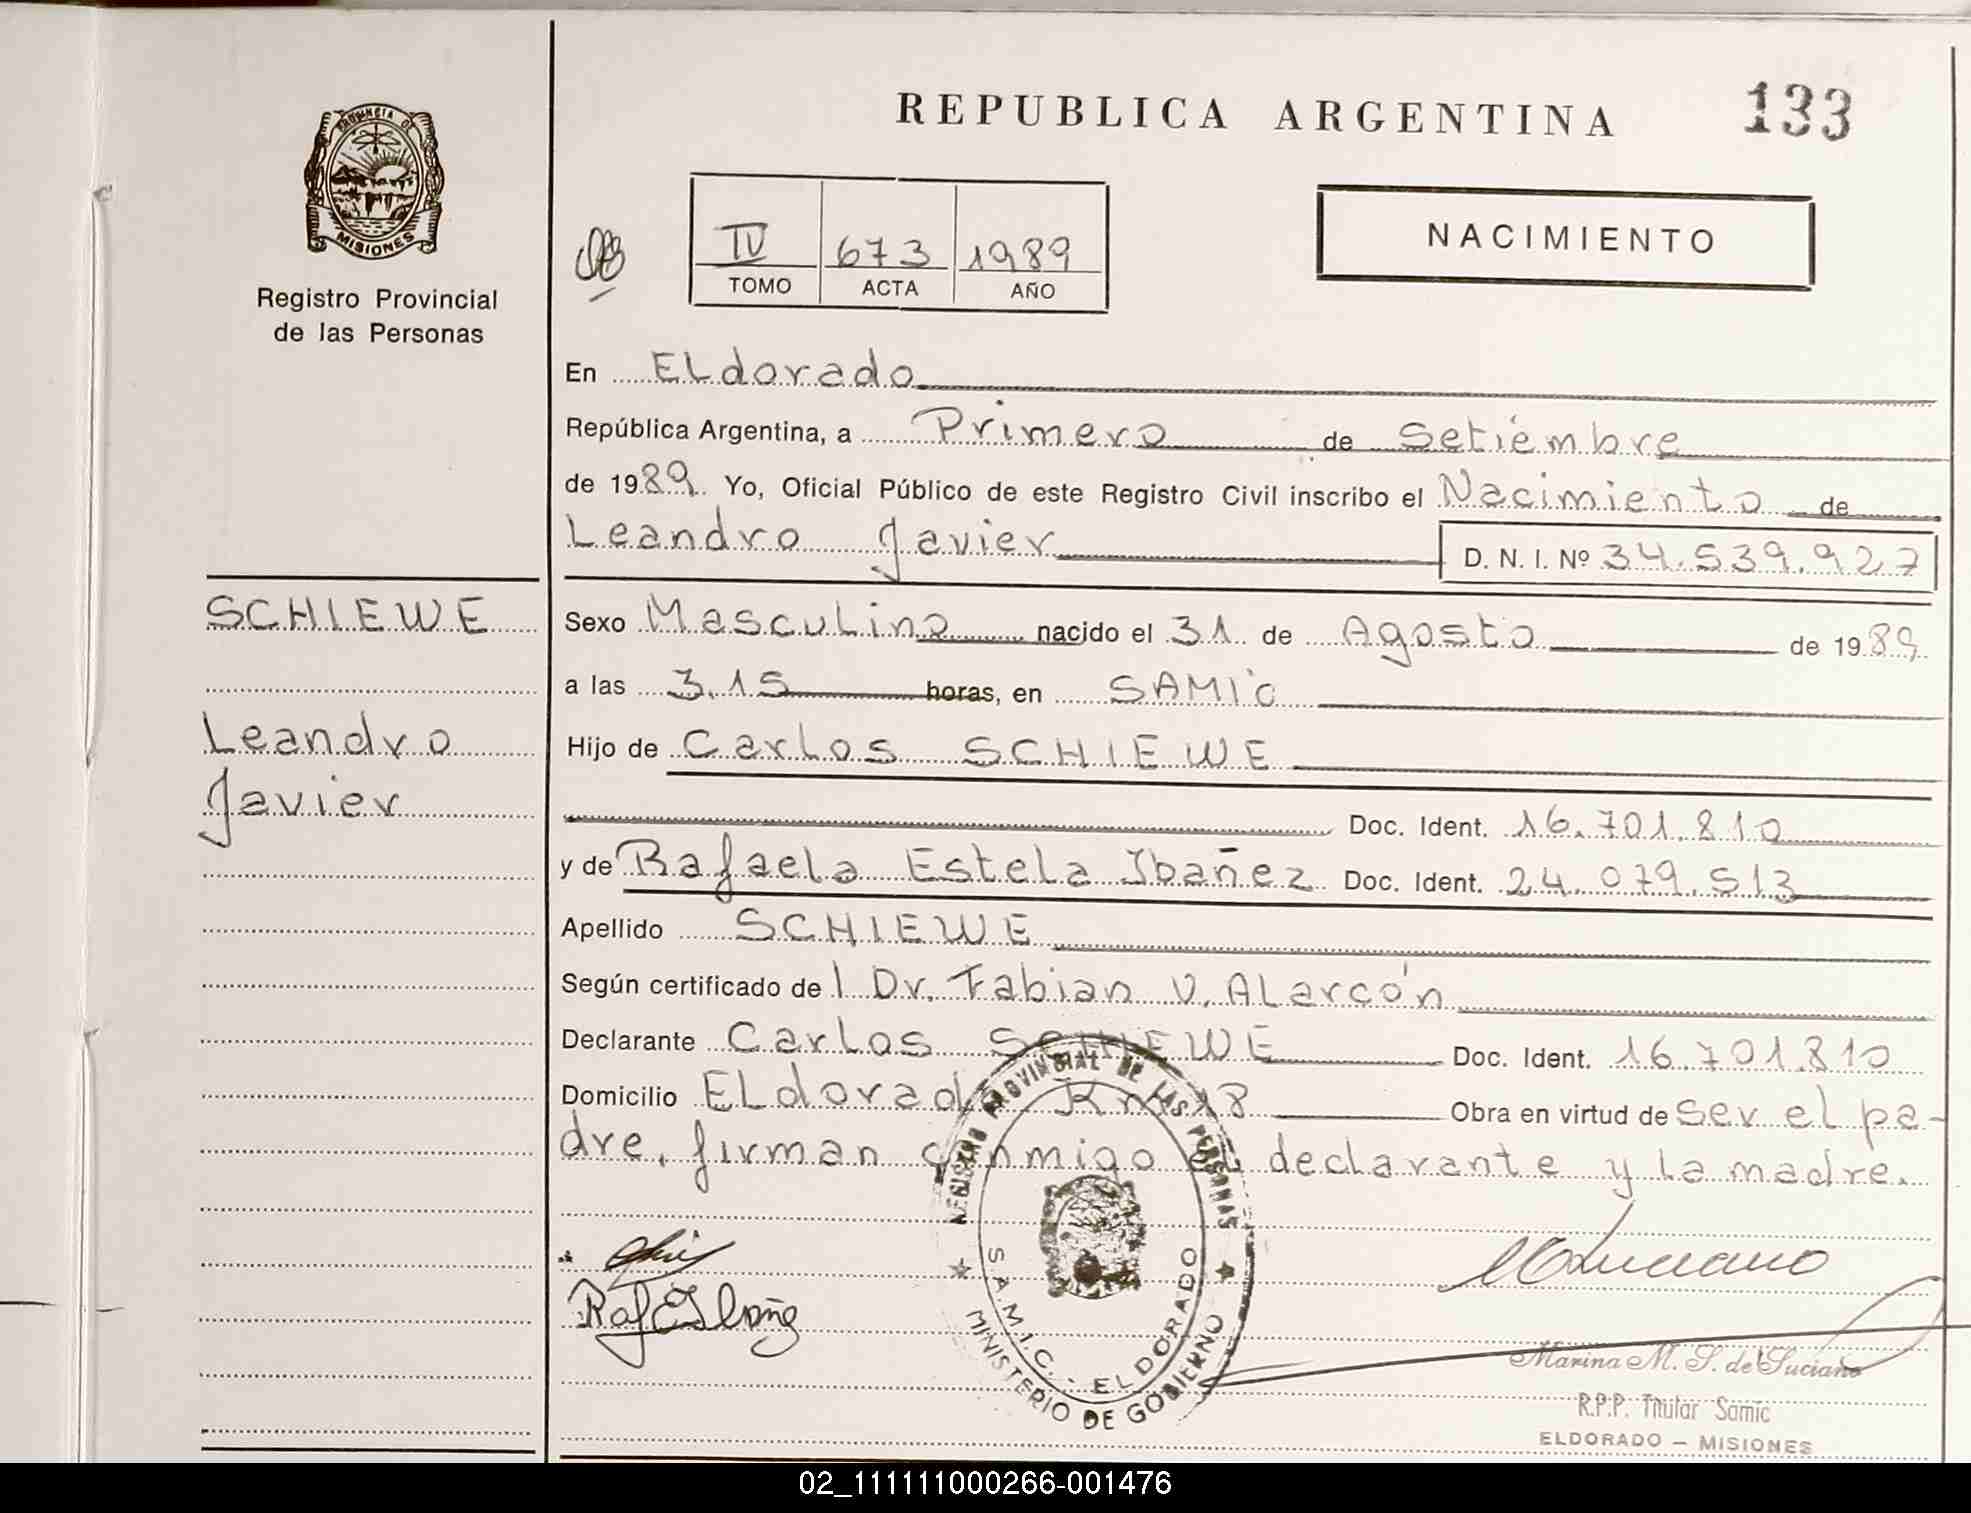 REPUBLICA ARGENTINA
133
PROVINCIA DE
MISIONES
Registro Provincial
de las Personas
IV 673 1989
TOMO ACTA AÑO
NACIMIENTO
En ELdorado
República Argentina, a Primero de Setiembre
de 1989. Yo, Oficial Público de este Registro Civil inscribo el Nacimiento de
Leandro Javier D. N. I. Nº 34.539.927
SCHIEWE
Leandro
Javier
Sexo Masculino nacido el 31 de Agosto de 1989
a las 3.15 horas, en SAMIC
Hijo de Carlos SCHIEWE
Doc. Ident. 16.701.810
y de Rafaela Estela Ibañez Doc. Ident. 24.079.513
Apellido SCHIEWE
Según certificado de l Dr. Fabian V. ALarcón
Declarante Carlos SCHIEWE Doc. Ident. 16.701.810
Domicilio ELdorado Km 18 Obra en virtud de ser el pa-
dre, firman conmigo el declarante y la madre.
REGISTRO PROVINCIAL DE LAS PERSONAS
S.A.M.I.C. - ELDORADO
MINISTERIO DE GOBIERNO
Marina M. S. de Luciano
R.P.P. Titular Samic
ELDORADO - MISIONES
02_111111000266-001476